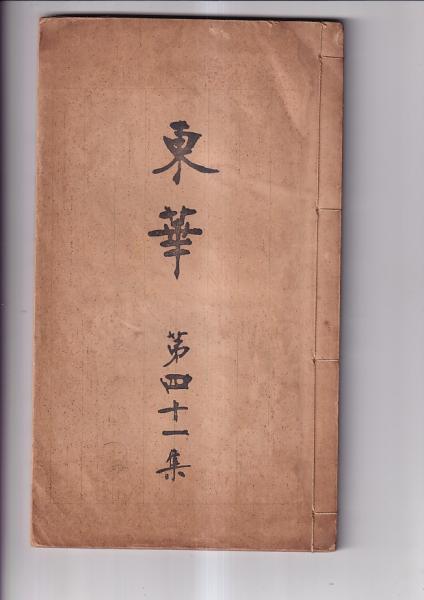 東華
第四十一集